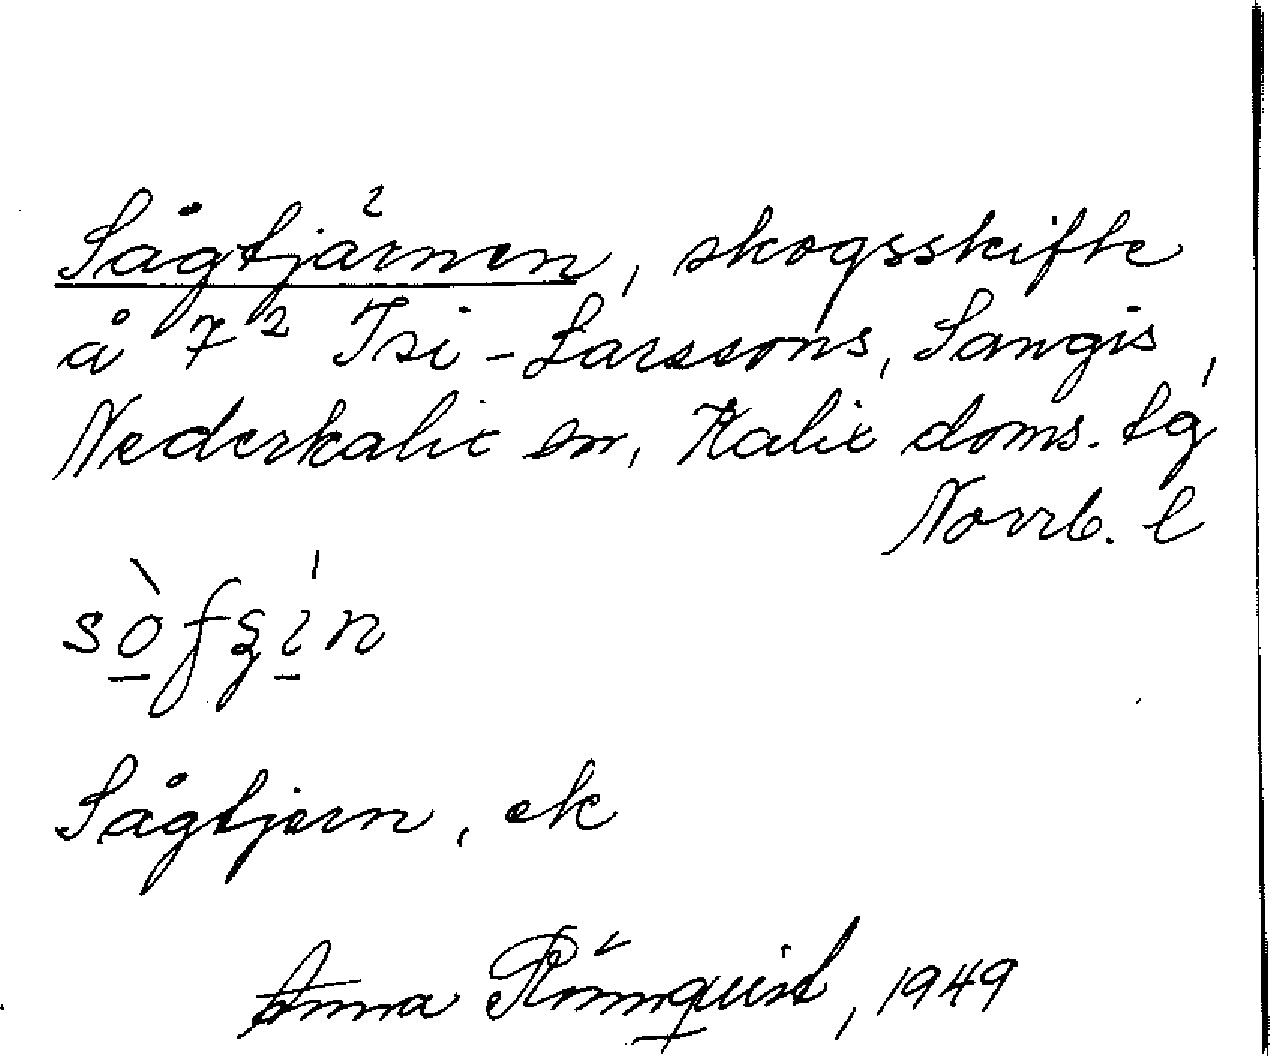 Sågtjärnen, skogsskifte
å 7² Isi-Larssons, Sangis,
Nederkalix sn, Kalix doms. lg
Norrb. l
Sågtjern, ek
Anna Rönnquist, 1949